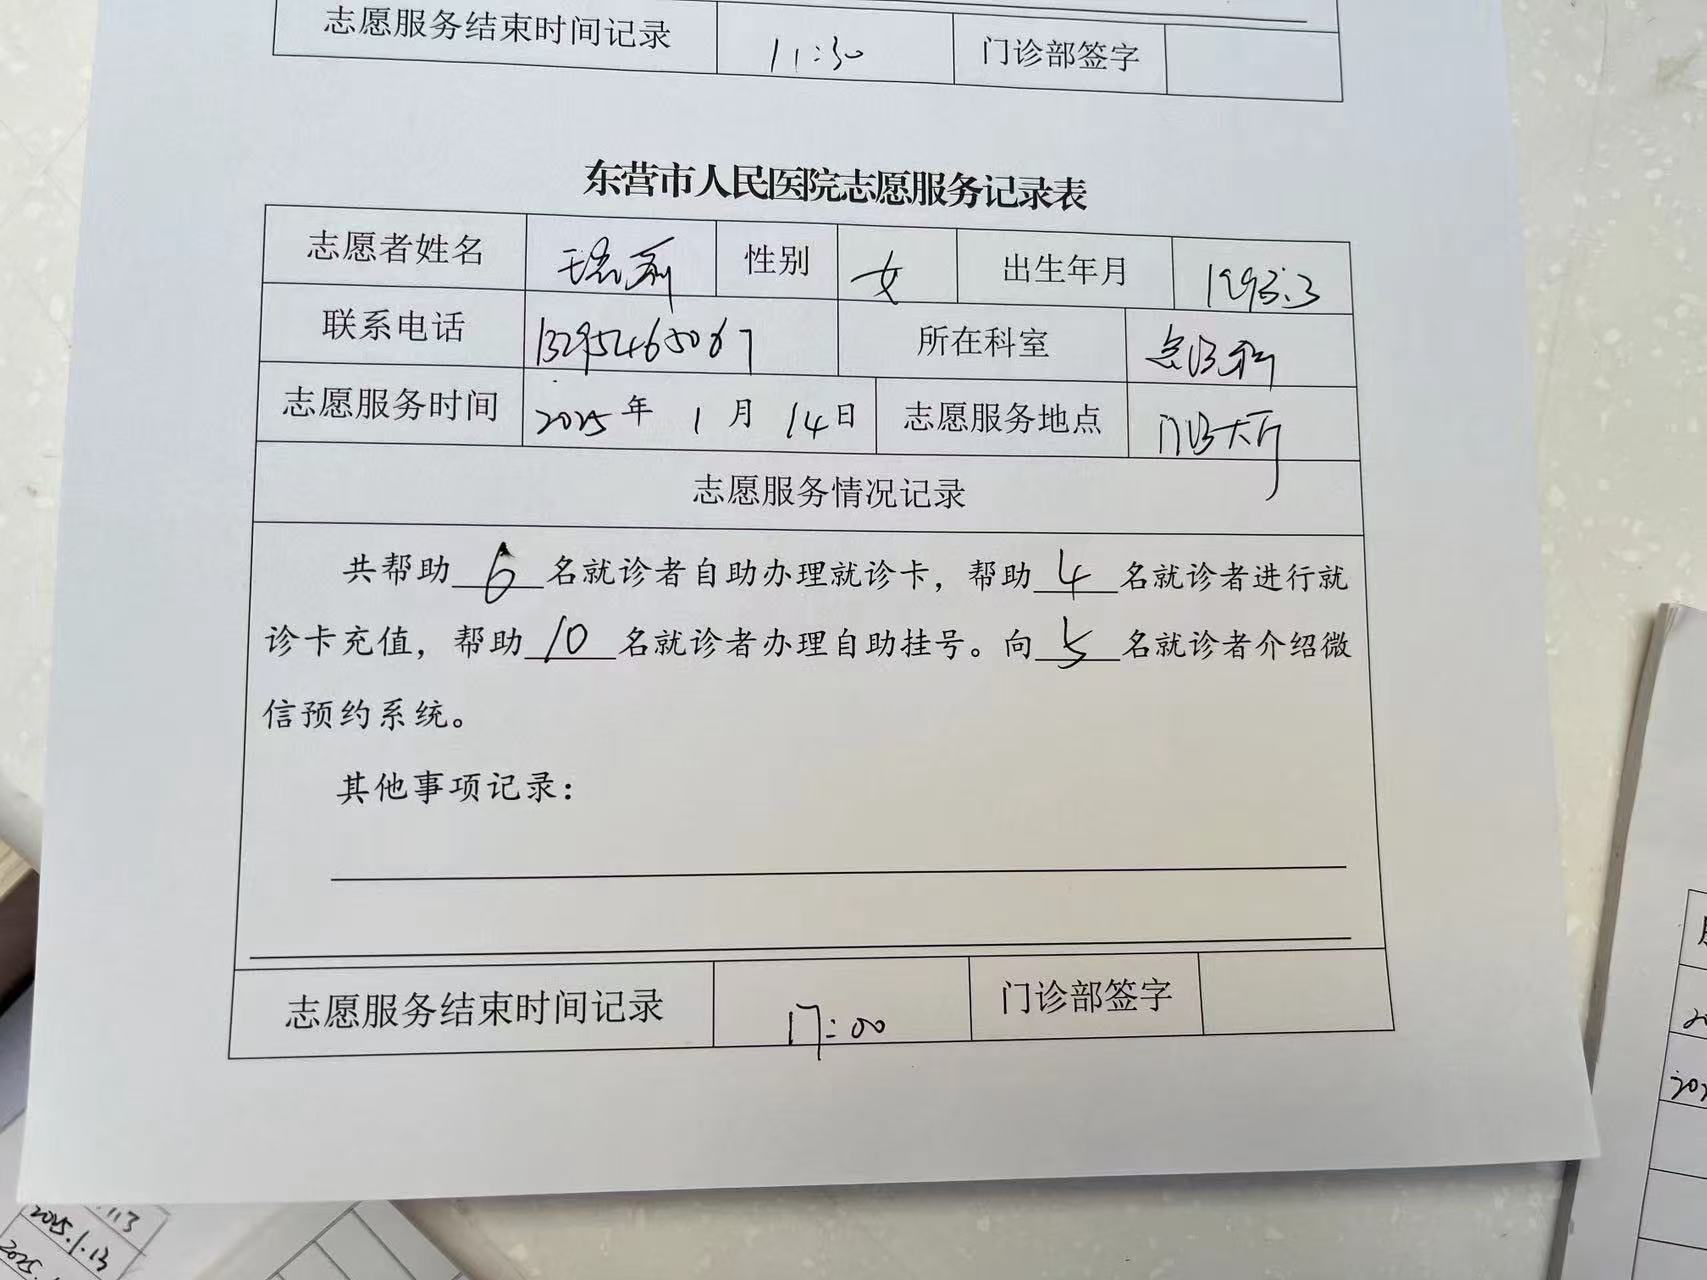 志愿服务结束时间记录 11:30 门诊部签字
东营市人民医院志愿服务记录表
志愿者姓名 性别 女 出生年月 1993.3
联系电话 13295465067 所在科室 急诊科
志愿服务时间 2025年 1月 14日 志愿服务地点 门诊大厅
志愿服务情况记录
共帮助 6 名就诊者自助办理就诊卡，帮助 4 名就诊者进行就
诊卡充值，帮助 10 名就诊者办理自助挂号。向 5 名就诊者介绍微
信预约系统。
其他事项记录：
志愿服务结束时间记录 17:00 门诊部签字
2025.1.13
2025.